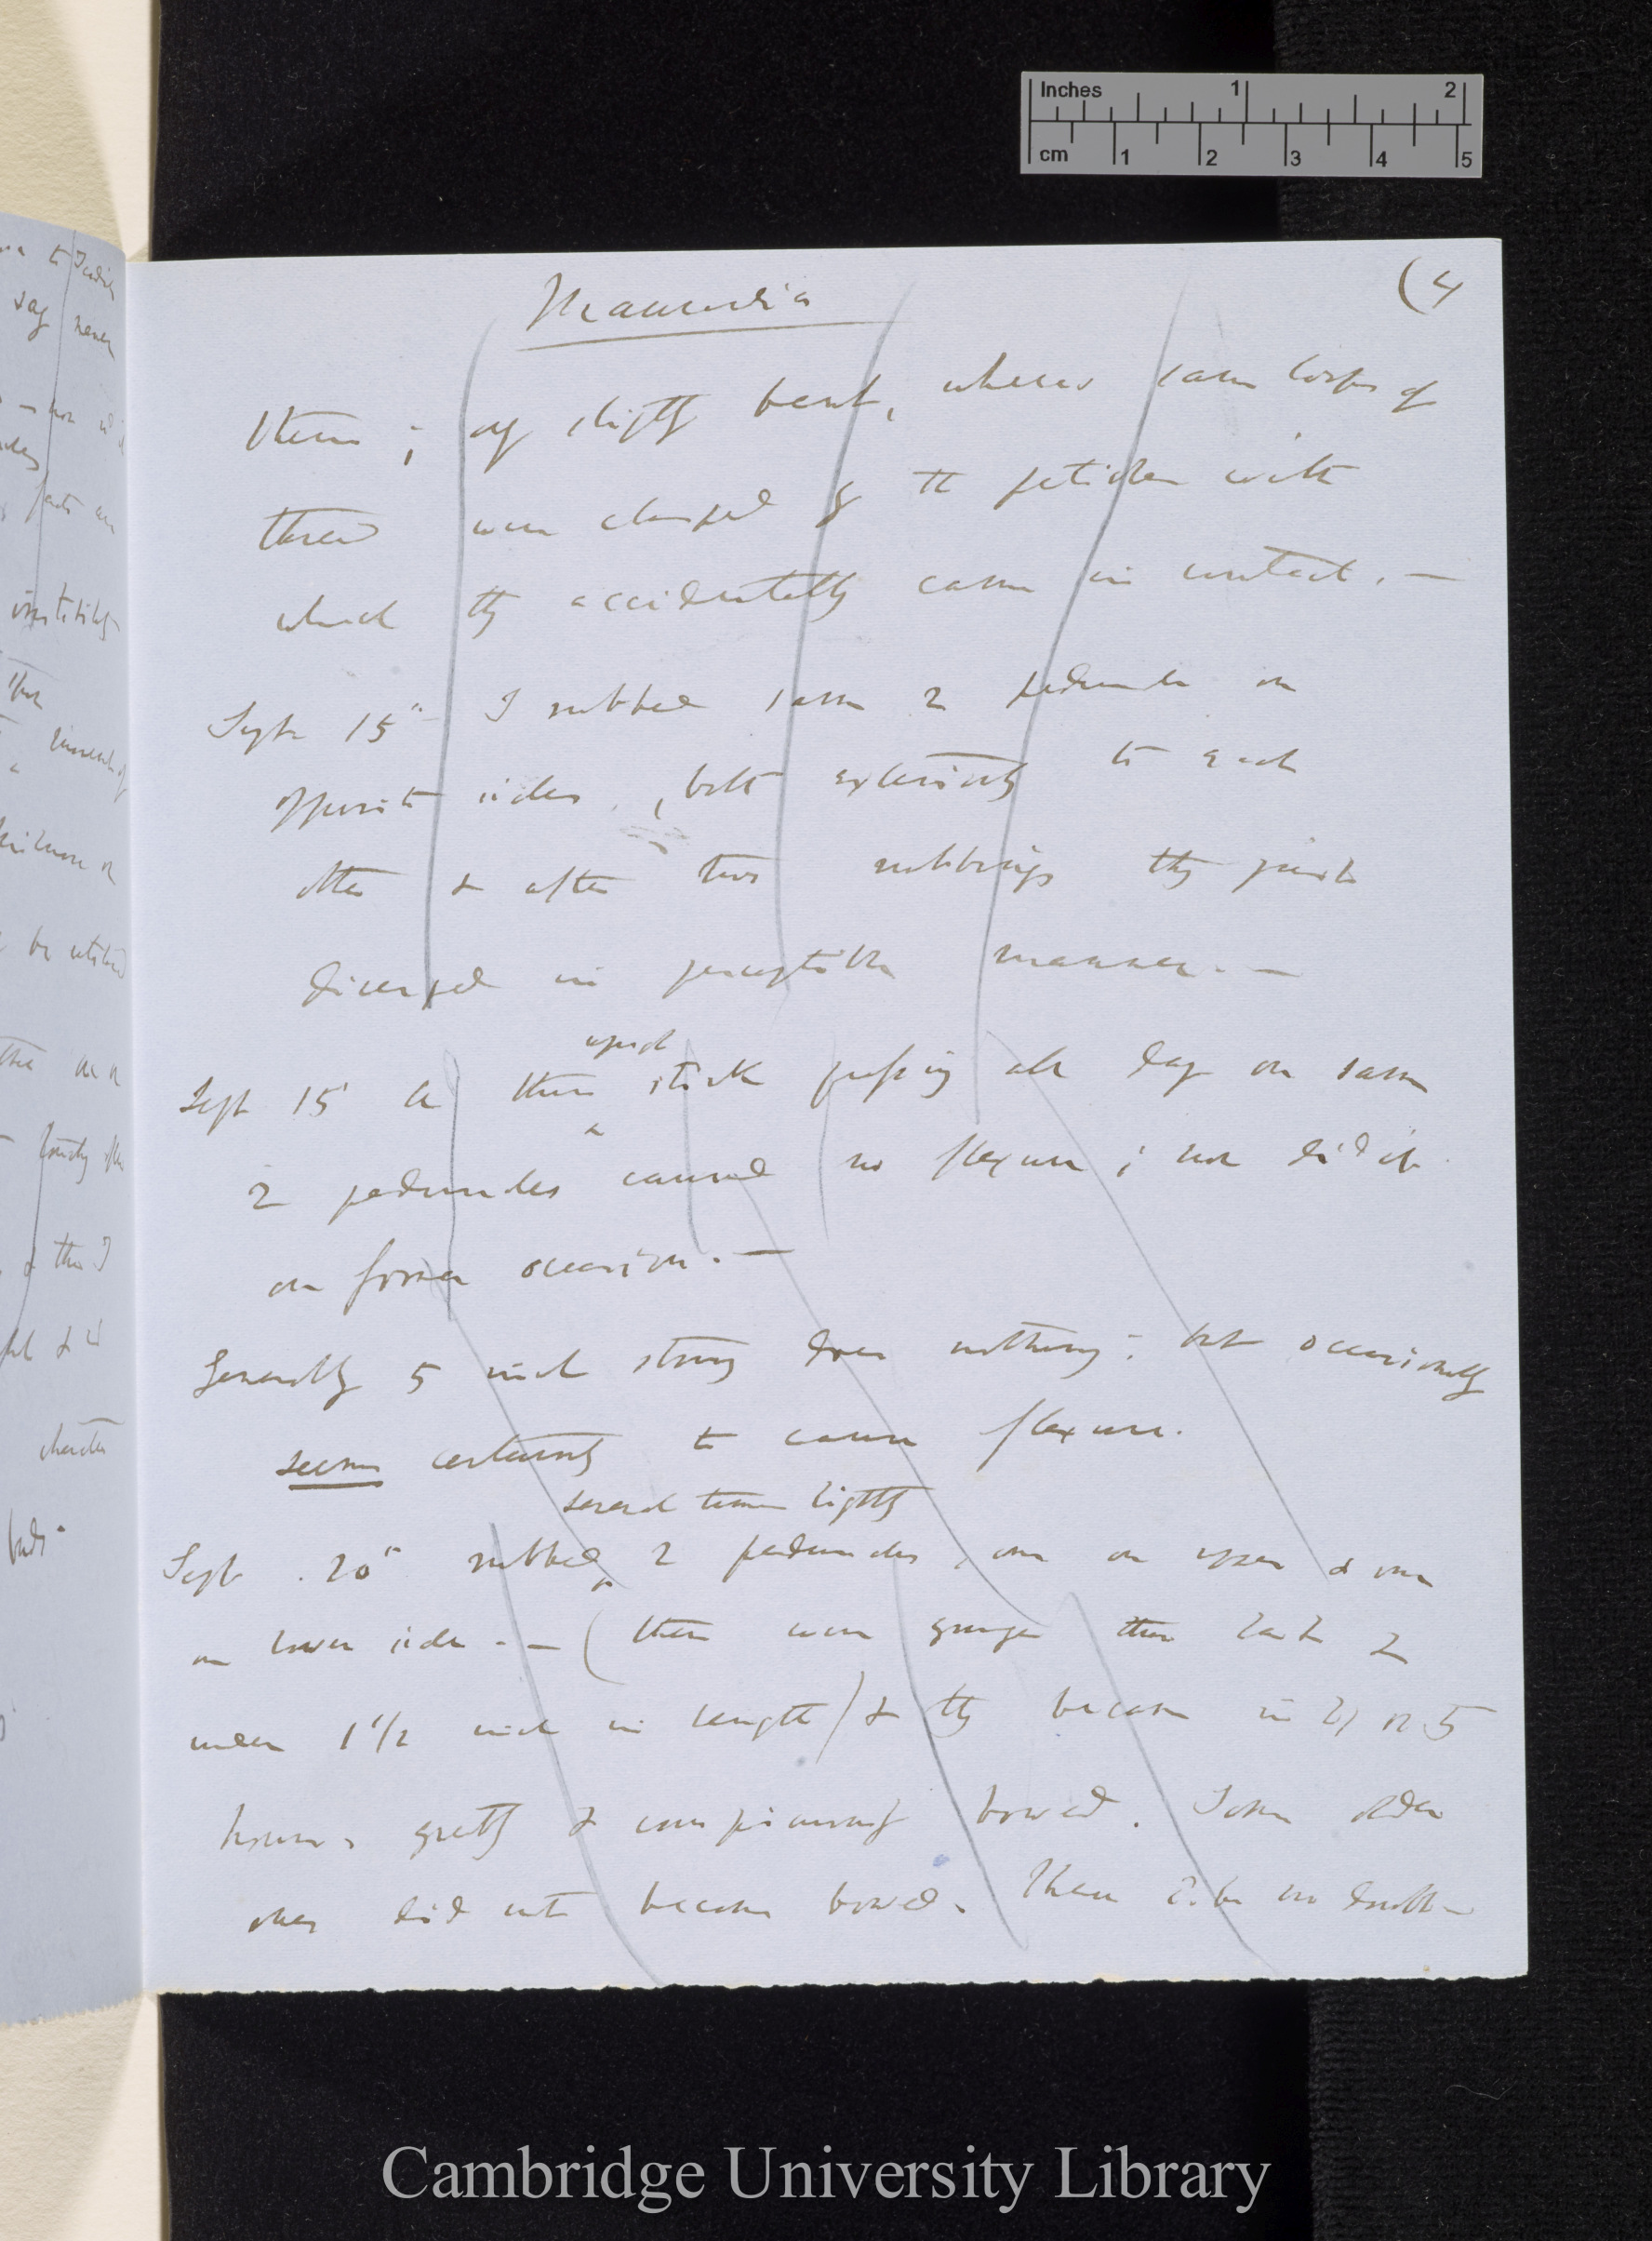 Inches 1 2
cm 1 2 3 4 5
Maurandia
(4
them; only slightly bent, whereas same loops of
thread were clasped by the petioles with
which they accidentally came in contact. —
Sept 15th I rubbed same 2 peduncles on
opposite sides, both exteriorly to each
other & after two rubbings they just
diverged in perceptible manner. —
upright
Sept 15 a thin stick pressing all day on same
2 peduncles caused no flexure; nor did it
on former occasion. —
Generally 5 inch string does nothing; but occasionally
seems certainly to cause flexure.
several times lightly
Sept. 20th rubbed 2 peduncles, one on upper & one
on lower side. — (these were younger than last 2
under 1 1/2 inch in length) & they became in 4 or 5
hours greatly & conspicuously bowed. Some older
ones did not become bowed. There can be no doubt
say never
parts are
irritability
character
buds.
Cambridge University Library